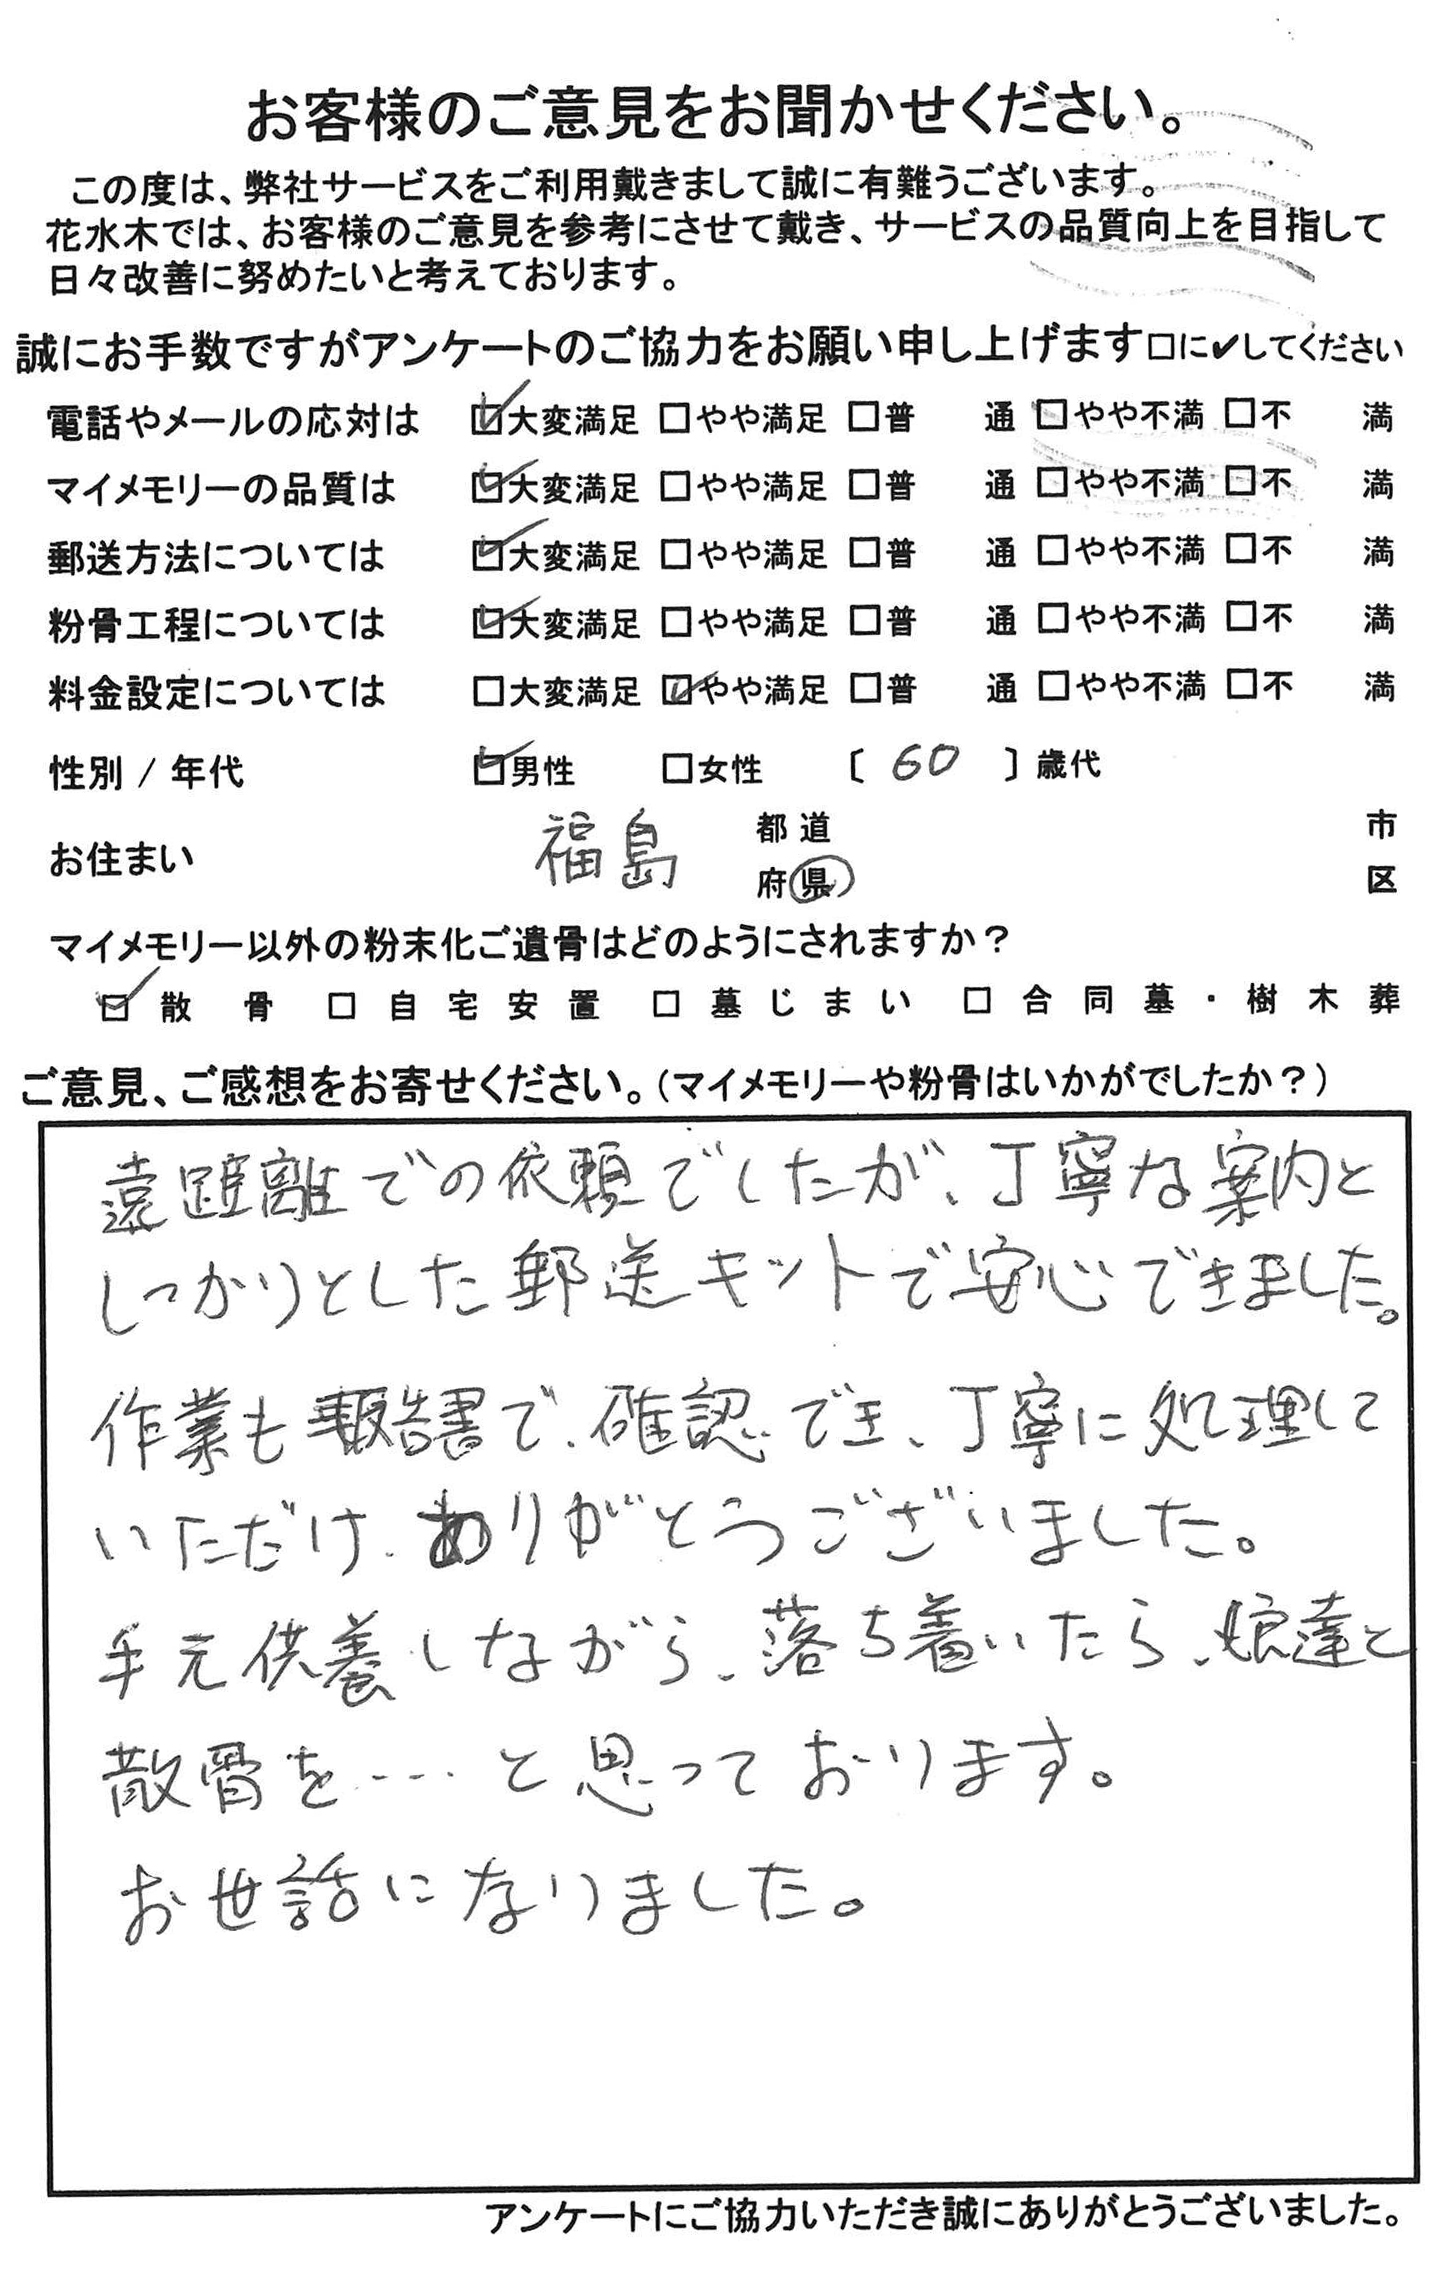 お客様のご意見をお聞かせください。
この度は、弊社サービスをご利用戴きまして誠に有難うございます。
花水木では、お客様のご意見を参考にさせて戴き、サービスの品質向上を目指して
日々改善に努めたいと考えております。
誠にお手数ですがアンケートのご協力をお願い申し上げます□に✔してください
電話やメールの応対は ☑大変満足 □やや満足 □普 通 □やや不満 □不 満
マイメモリーの品質は ☑大変満足 □やや満足 □普 通 □やや不満 □不 満
郵送方法については ☑大変満足 □やや満足 □普 通 □やや不満 □不 満
粉骨工程については ☑大変満足 □やや満足 □普 通 □やや不満 □不 満
料金設定については □大変満足 ☑やや満足 □普 通 □やや不満 □不 満
性別 / 年代 ☑男性 □女性 〔 60 〕歳代
お住まい 福島 都道府県 市区
マイメモリー以外の粉末化ご遺骨はどのようにされますか？
☑ 散骨 □ 自宅安置 □ 墓じまい □ 合同墓・樹木葬
ご意見、ご感想をお寄せください。(マイメモリーや粉骨はいかがでしたか？)
遠距離での依頼でしたが、丁寧な案内と
しっかりとした郵送キットで安心できました。
作業も報告書で、確認でき、丁寧に処理して
いただけ、ありがとうございました。
手元供養しながら、落ち着いたら、娘達と
散骨を…と思っております。
お世話になりました。
アンケートにご協力いただき誠にありがとうございました。